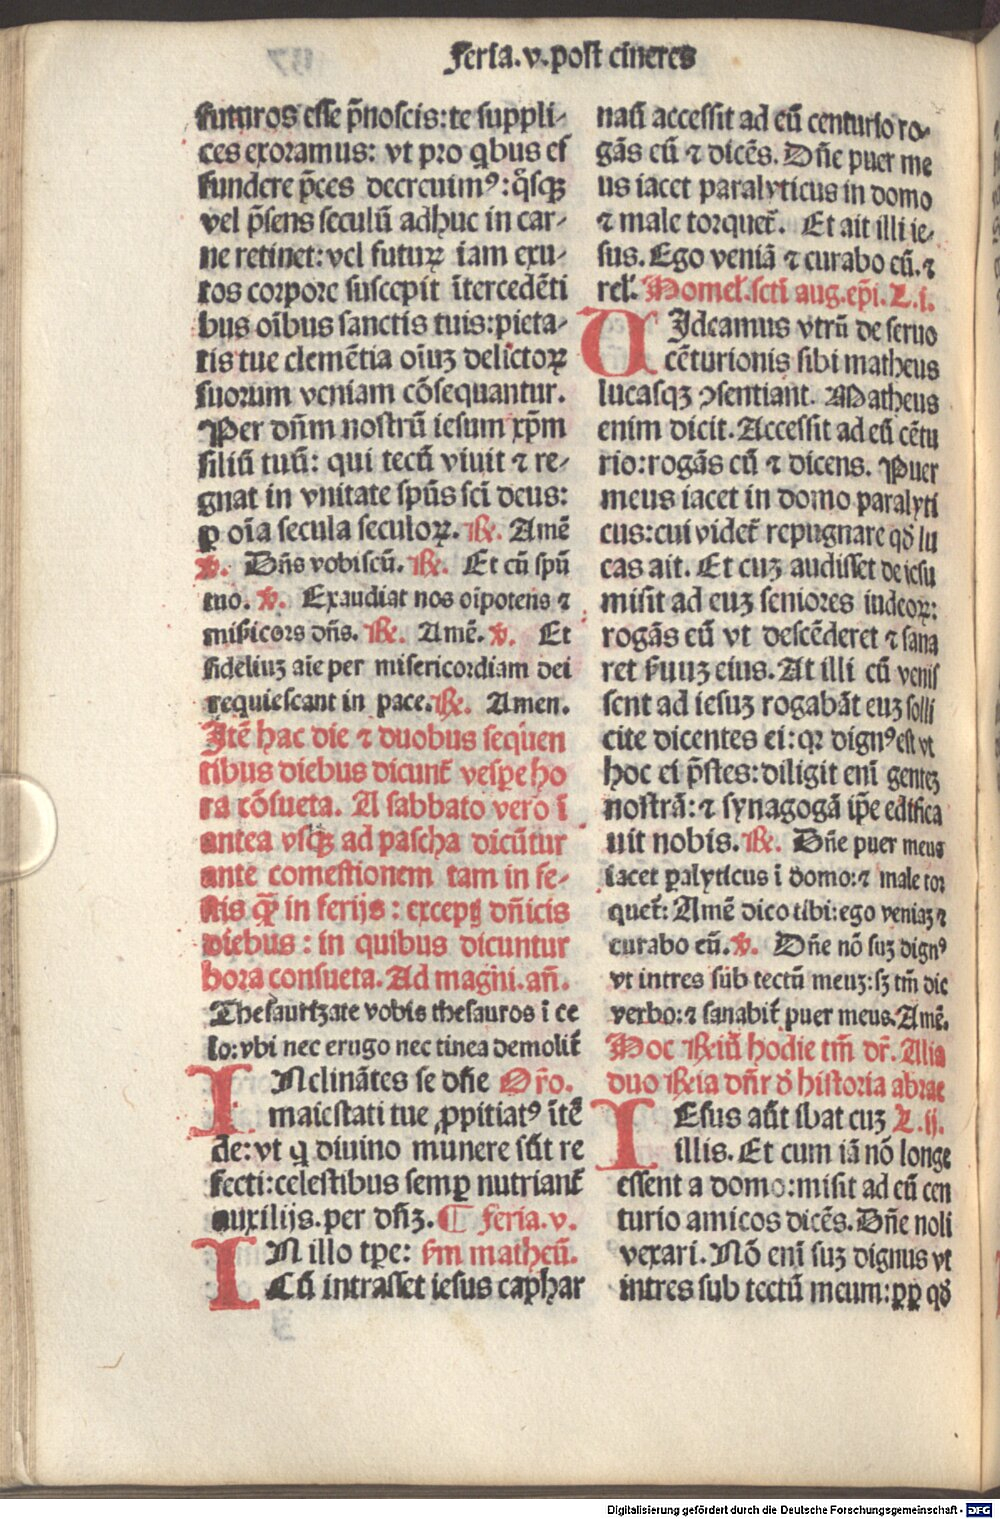 Feria.v.post cineres
futuros esse p̃noscis:te suppli-
ces exoramus: vt pro q̃bus ef
fundere p̃ces decreuimꝰ:q̃sqꝫ
vel p̃sens seculũ adhuc in car-
ne retinet:vel futuꝝ iam exu-
tos corpore suscepit ĩtercedẽti
bus oĩbus sanctis tuis:pieta-
tis tue clemẽtia oĩuꝫ delictoꝝ
suorum veniam cõsequantur.
Per dñm nostrũ iesum xp̃m
filiũ tuũ: qui tecũ viuit ⁊ re-
gnat in vnitate spũs sct̃i deus:
ꝑ oĩa secula seculoꝝ. ℟. Amẽ
℣. Dñs vobiscũ. ℟. Et cũ spũ
tuo. ℣. Exaudiat nos oĩpotens ⁊
misicors dñs. ℟. Amẽ. ℣. Et
fideliuꝫ aĩe per misericordiam dei
requiescant in pace. ℟. Amen.
Itẽ hac die ⁊ duobus sequen
tibus diebus dicunt̃ vespe ho
ra cõsueta. A sabbato vero ĩ
antea vsqꝫ ad pascha dicũtur
ante comestionem tam in fe-
stis qꝫ̃ in ferijs : exceptꝭ dñicis
diebus : in quibus dicuntur
hora consueta. Ad magñi. añ.
Thesaurizate vobis thesauros ĩ ce
lo:vbi nec erugo nec tinea demolit̃
INclinãtes se dñe Or̃o.
maiestati tue ꝓpitiatꝰ ĩtẽ
de:vt q̃ diuino munere sũt re
fecti:celestibus semꝑ nutriant̃
auxilijs.per dñꝫ. ¶ feria.v.
IN illo tꝑe: s̃m matheũ.
Cũ intrasset iesus caphar
naũ accessit ad eũ centurio ro-
gãs eũ ⁊ dicẽs. Dñe puer me
us iacet paralyticus in domo
⁊ male torquet̃. Et ait illi ie-
sus. Ego veniã ⁊ curabo eũ. ⁊
rel̃. Homel̃. sct̃i aug. ep̃i. L. i.
UIdeamus vtrũ de seruo
cẽturionis sibi matheus
lucasqꝫ ꝯsentiant. Matheus
enim dicit. Accessit ad eũ cẽtu
rio:rogãs eũ ⁊ dicens. Puer
meus iacet in domo paralyti
cus:cui videt̃ repugnare qđ lu
cas ait. Et cuꝫ audisset de iesu
misit ad euꝫ seniores iudeoꝝ:
rogãs eũ vt descẽderet ⁊ sana
ret s̃uuꝫ eius. At illi cũ venis
sent ad iesuꝫ rogabãt euꝫ solli
cite dicentes ei: qꝛ dignꝰ est vt
hoc ei p̃stes:diligit eni gentẽ
nostrã: ⁊ synagogã ip̃e edifica
uit nobis. ℟. Dñe puer meus
iacet ꝑalyticus ĩ domo: ⁊ male tor
quet̃: Amẽ dico tibi:ego veniaꝫ ⁊
curabo eũ. ℣. Dñe nõ suꝫ dignꝰ
vt intres sub tectũ meuꝫ: sꝫ tm̃ dic
verbo: ⁊ sanabit̃ puer meus. Amẽ.
Hoc ℟iũ hodie tm̃ dr̃. Alia
duo ℟ia dñr đ historia abrae
IEsus aũt ibat cuꝫ L. ij.
illis. Et cum iã nõ longe
essent a domo:misit ad eũ cen
turio amicos dicẽs. Dñe noli
vexari. Nõ eni suꝫ dignus vt
intres sub tectũ meum:ꝓpꝑ qđ
Digitalisierung gefördert durch die Deutsche Forschungsgemeinschaft - DFG